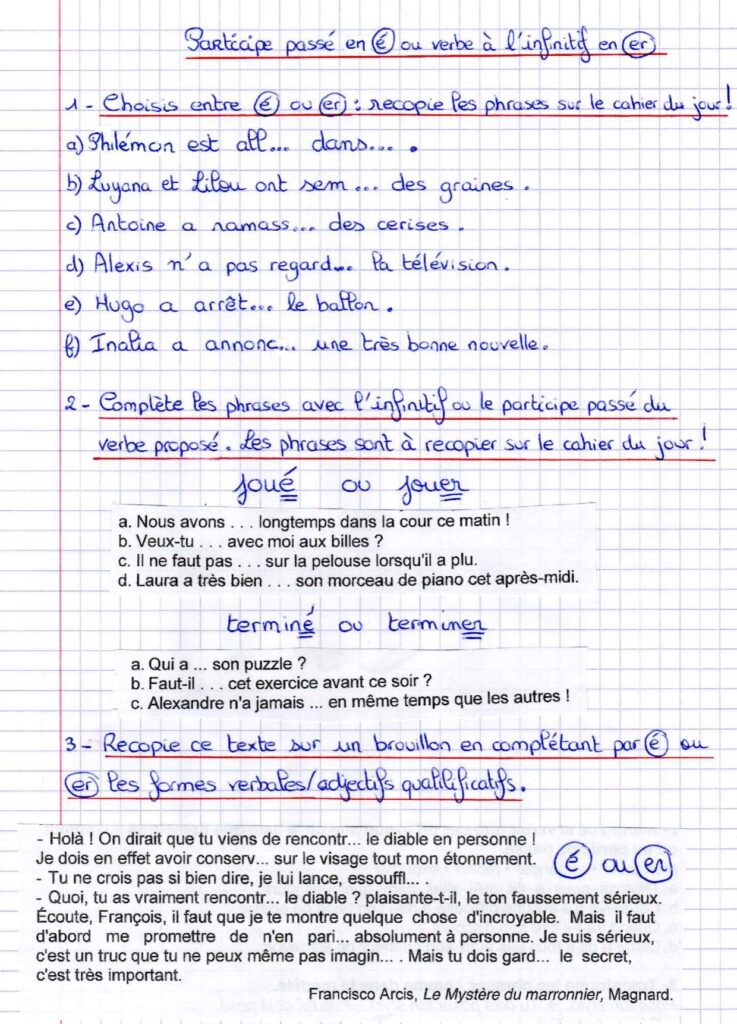 Participe passé en é ou verbe à l'infinitif en er
1 - Choisis entre é ou er : recopie les phrases sur le cahier du jour !
a) Philémon est all... dans.... .
b) Luyana et Lilou ont sem ... des graines .
c) Antoine a ramass... des cerises .
d) Alexis n'a pas regard... la télévision .
e) Hugo a arrêt.... le ballon .
f) Inalia a annonc... une très bonne nouvelle .
2 - Complète les phrases avec l'infinitif ou le participe passé du
verbe proposé . Les phrases sont à recopier sur le cahier du jour !
joué ou jouer
a. Nous avons . . . longtemps dans la cour ce matin !
b. Veux-tu . . . avec moi aux billes ?
c. Il ne faut pas . . . sur la pelouse lorsqu'il a plu.
d. Laura a très bien . . . son morceau de piano cet après-midi.
terminé ou terminer
a. Qui a ... son puzzle ?
b. Faut-il . . . cet exercice avant ce soir ?
c. Alexandre n'a jamais ... en même temps que les autres !
3 - Recopie ce texte sur un brouillon en complétant par é ou
er les formes verbales/adjectifs qualilificatifs .
- Holà ! On dirait que tu viens de rencontr... le diable en personne !
Je dois en effet avoir conserv... sur le visage tout mon étonnement.
- Tu ne crois pas si bien dire, je lui lance, essouffl... .
é ou er
- Quoi, tu as vraiment rencontr... le diable ? plaisante-t-il, le ton faussement sérieux.
Écoute, François, il faut que je te montre quelque chose d'incroyable. Mais il faut
d'abord me promettre de n'en pari... absolument à personne. Je suis sérieux,
c'est un truc que tu ne peux même pas imagin... . Mais tu dois gard... le secret,
c'est très important.
Francisco Arcis, Le Mystère du marronnier, Magnard.